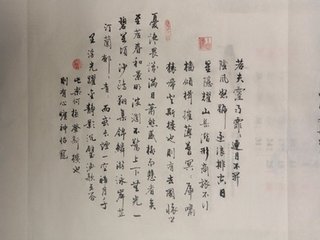 若夫霪雨霏霏連月不開
陰風怒號濁浪排空日
星隱耀山岳潛形商旅不行
檣傾楫摧薄暮冥冥虎嘯
猿啼登斯樓也則有去國懷鄉
憂讒畏譏滿目蕭然感極而悲者矣
至若春和景明波瀾不驚上下天光一
碧萬頃沙鷗翔集錦鱗游泳岸芷
汀蘭郁郁青青而或長煙一空皓月千
里浮光躍金靜影沉璧漁歌互答
此樂何極登斯樓也
則有心曠神怡寵